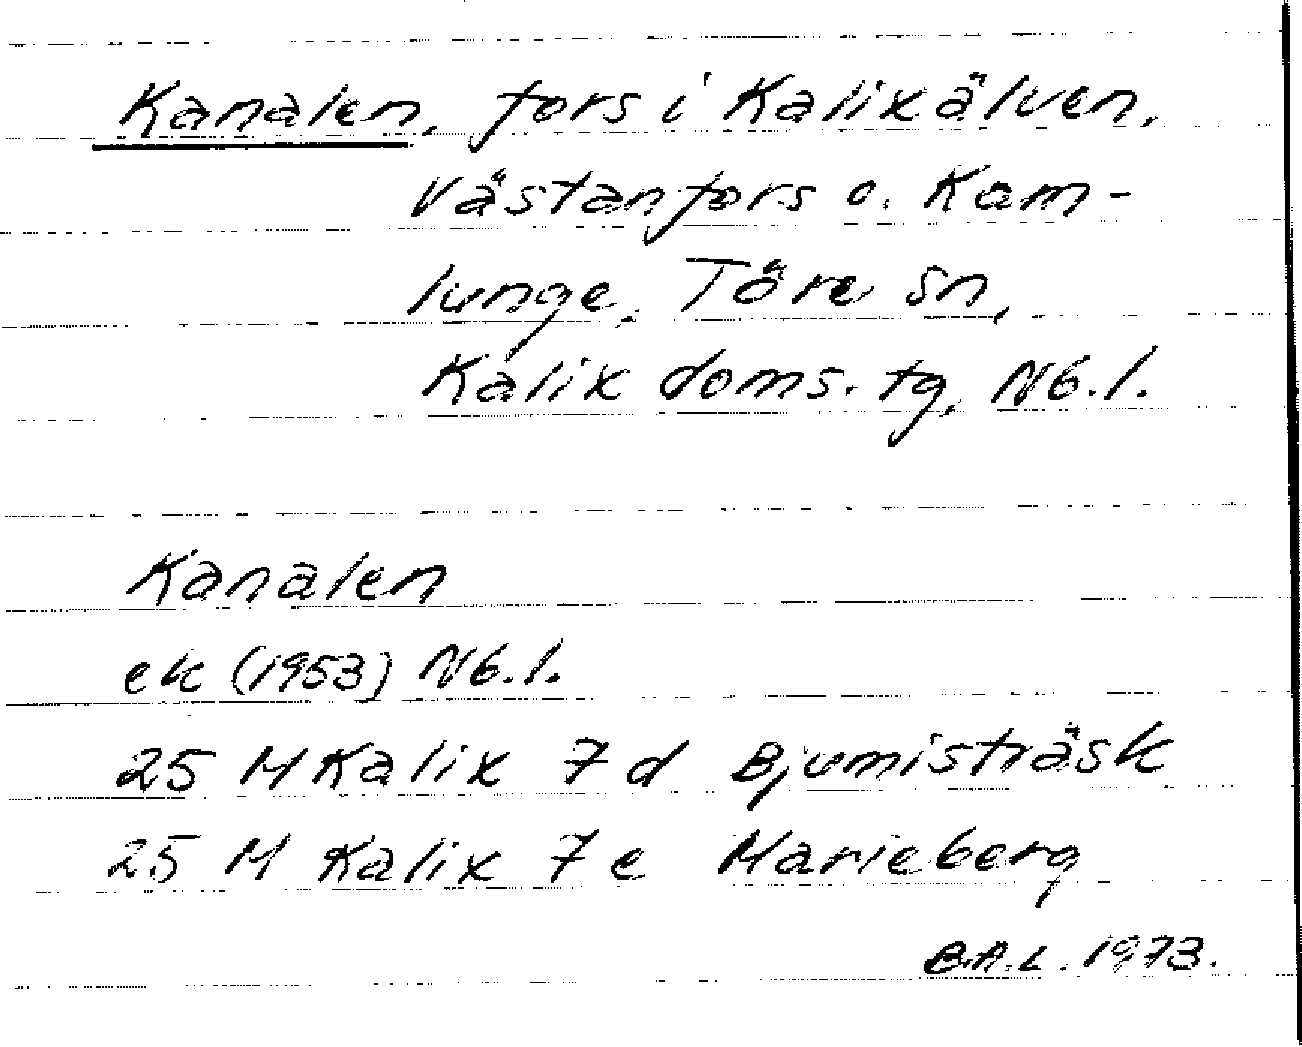 Kanalen, fors i Kalixälven,
Västanfors o. Kam-
lunge, Töre sn,
Kalix doms. tg, Nb.l.
Kanalen
ek (1953) Nb.l.
25 M Kalix 7d Bjumisträsk
25 M Kalix 7e Marieberg
B.A.L. 1973.